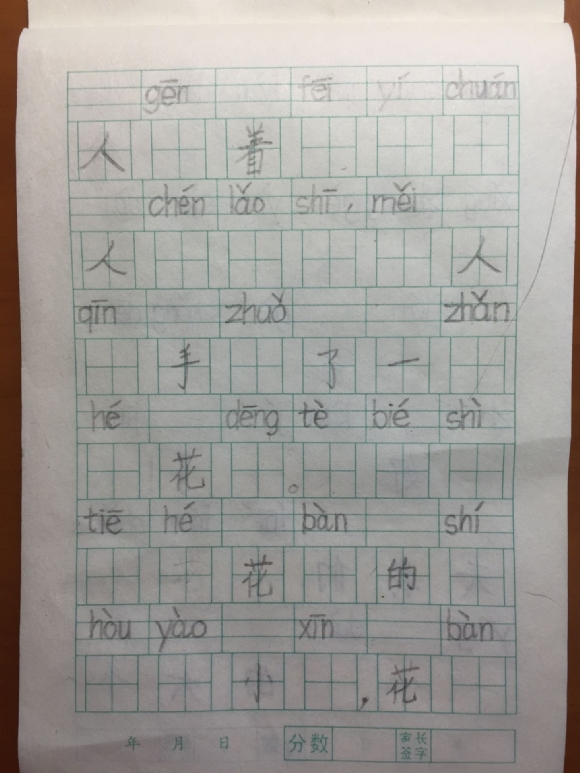 gēn fēi yí chuán
人 着
chén lǎo shī, měi
人 人
qīn zhuǒ zhǎn
手 了 一
hé dēng tè bié shì
花 。
tiē hé bàn shí
花 的
hòu yào xīn bàn
小 , 花
年 月 日 分数 家长签字